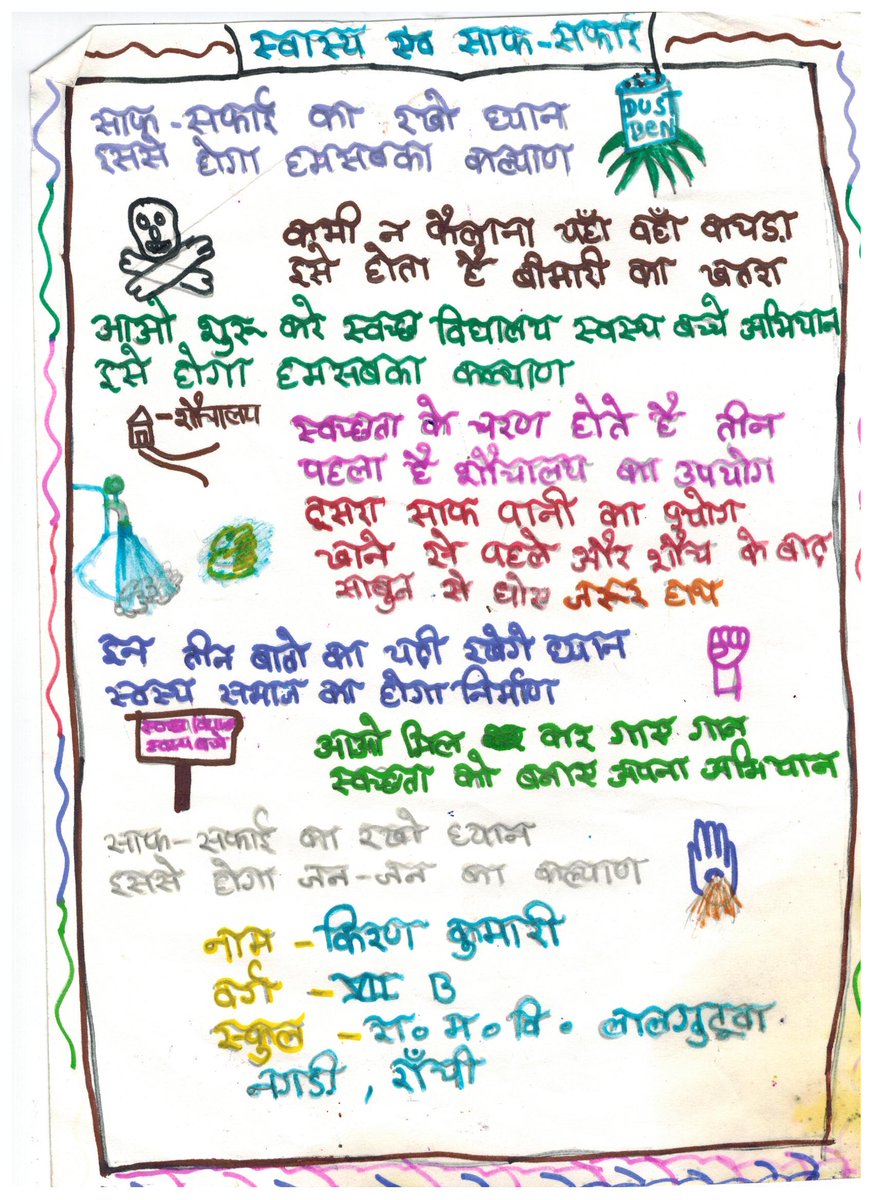 स्वास्थ्य एंव साफ-सफाई
DUST
BEN
साफ-सफाई का रखो ध्यान
इससे होगा हमसबका कल्याण
कभी न फैलाना यहाँ वहाँ कचड़ा
इसे होता है बीमारी का खतरा
आओ शुरू करे स्वच्छ विद्यालय स्वस्थ बच्चे अभियान
इसे होगा हमसबका कल्याण
-शौचालय
स्वच्छता के चरण होते है तीन
पहला है शौचालय का उपयोग
दूसरा साफ पानी का प्रयोग
खाने से पहले और शौच के बाद
साबुन से धोए जरूर हाथ
इन तीन बातो का यही रखेगे ध्यान
स्वस्थ समाज का होगा निर्माण
स्वच्छ विद्यालय
स्वस्थ बच्चे
आओ मिल कर गाए गान
स्वच्छता को बनाए अपना अभियान
साफ-सफाई का रखो ध्यान
इससे होगा जन-जन का कल्याण
नाम - किरण कुमारी
वर्ग - B
स्कुल - रा॰ म॰ वि॰ लालगुटवा
नगडी, राँची